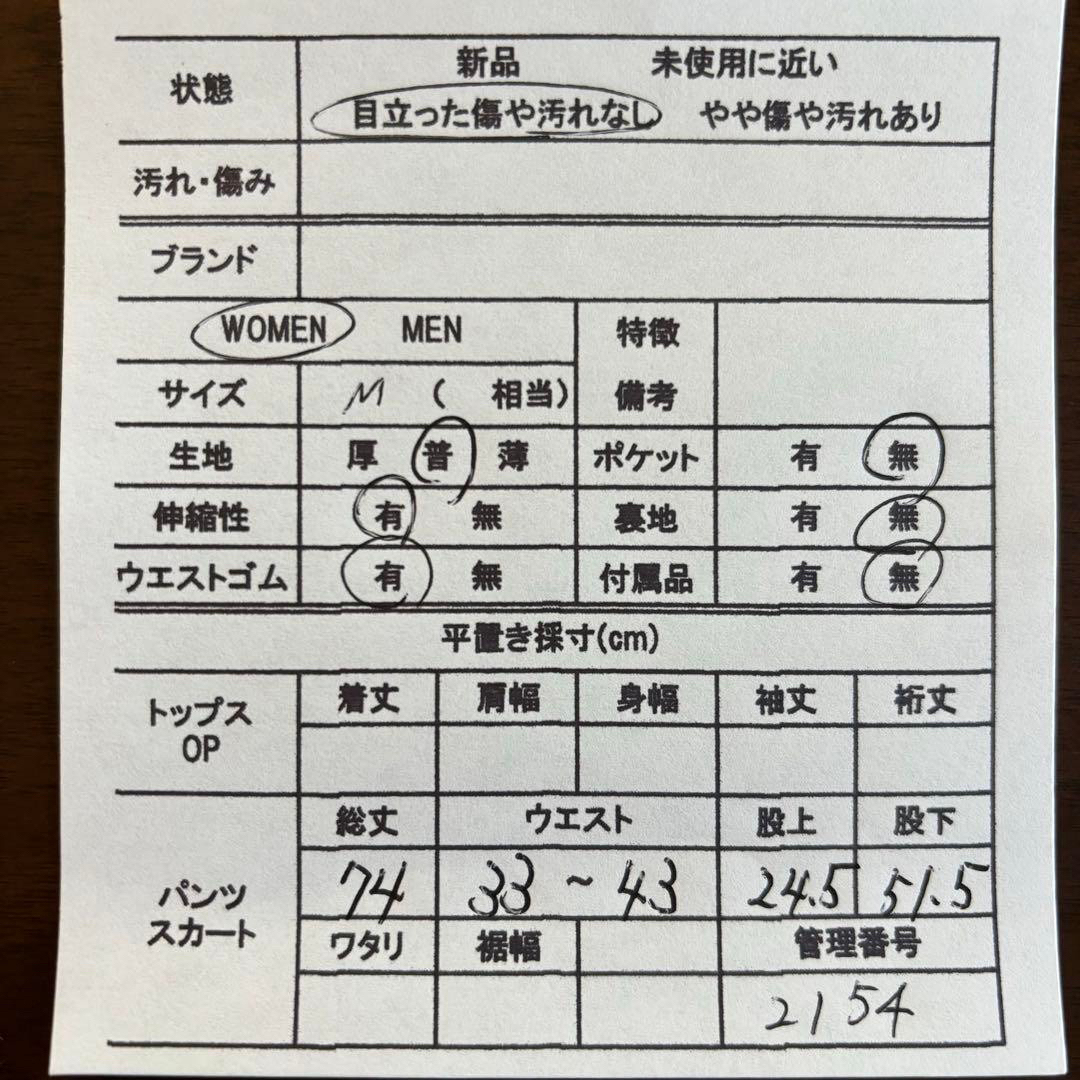 状態 新品 未使用に近い
目立った傷や汚れなし やや傷や汚れあり
汚れ・傷み
ブランド
WOMEN MEN 特徴
サイズ M ( 相当) 備考
生地 厚 普 薄 ポケット 有 無
伸縮性 有 無 裏地 有 無
ウエストゴム 有 無 付属品 有 無
平置き採寸(cm)
トップス 着丈 肩幅 身幅 袖丈 裄丈
OP
総丈 ウエスト 股上 股下
パンツ 74 33 ~ 43 24.5 51.5
スカート ワタリ 裾幅 管理番号
2154